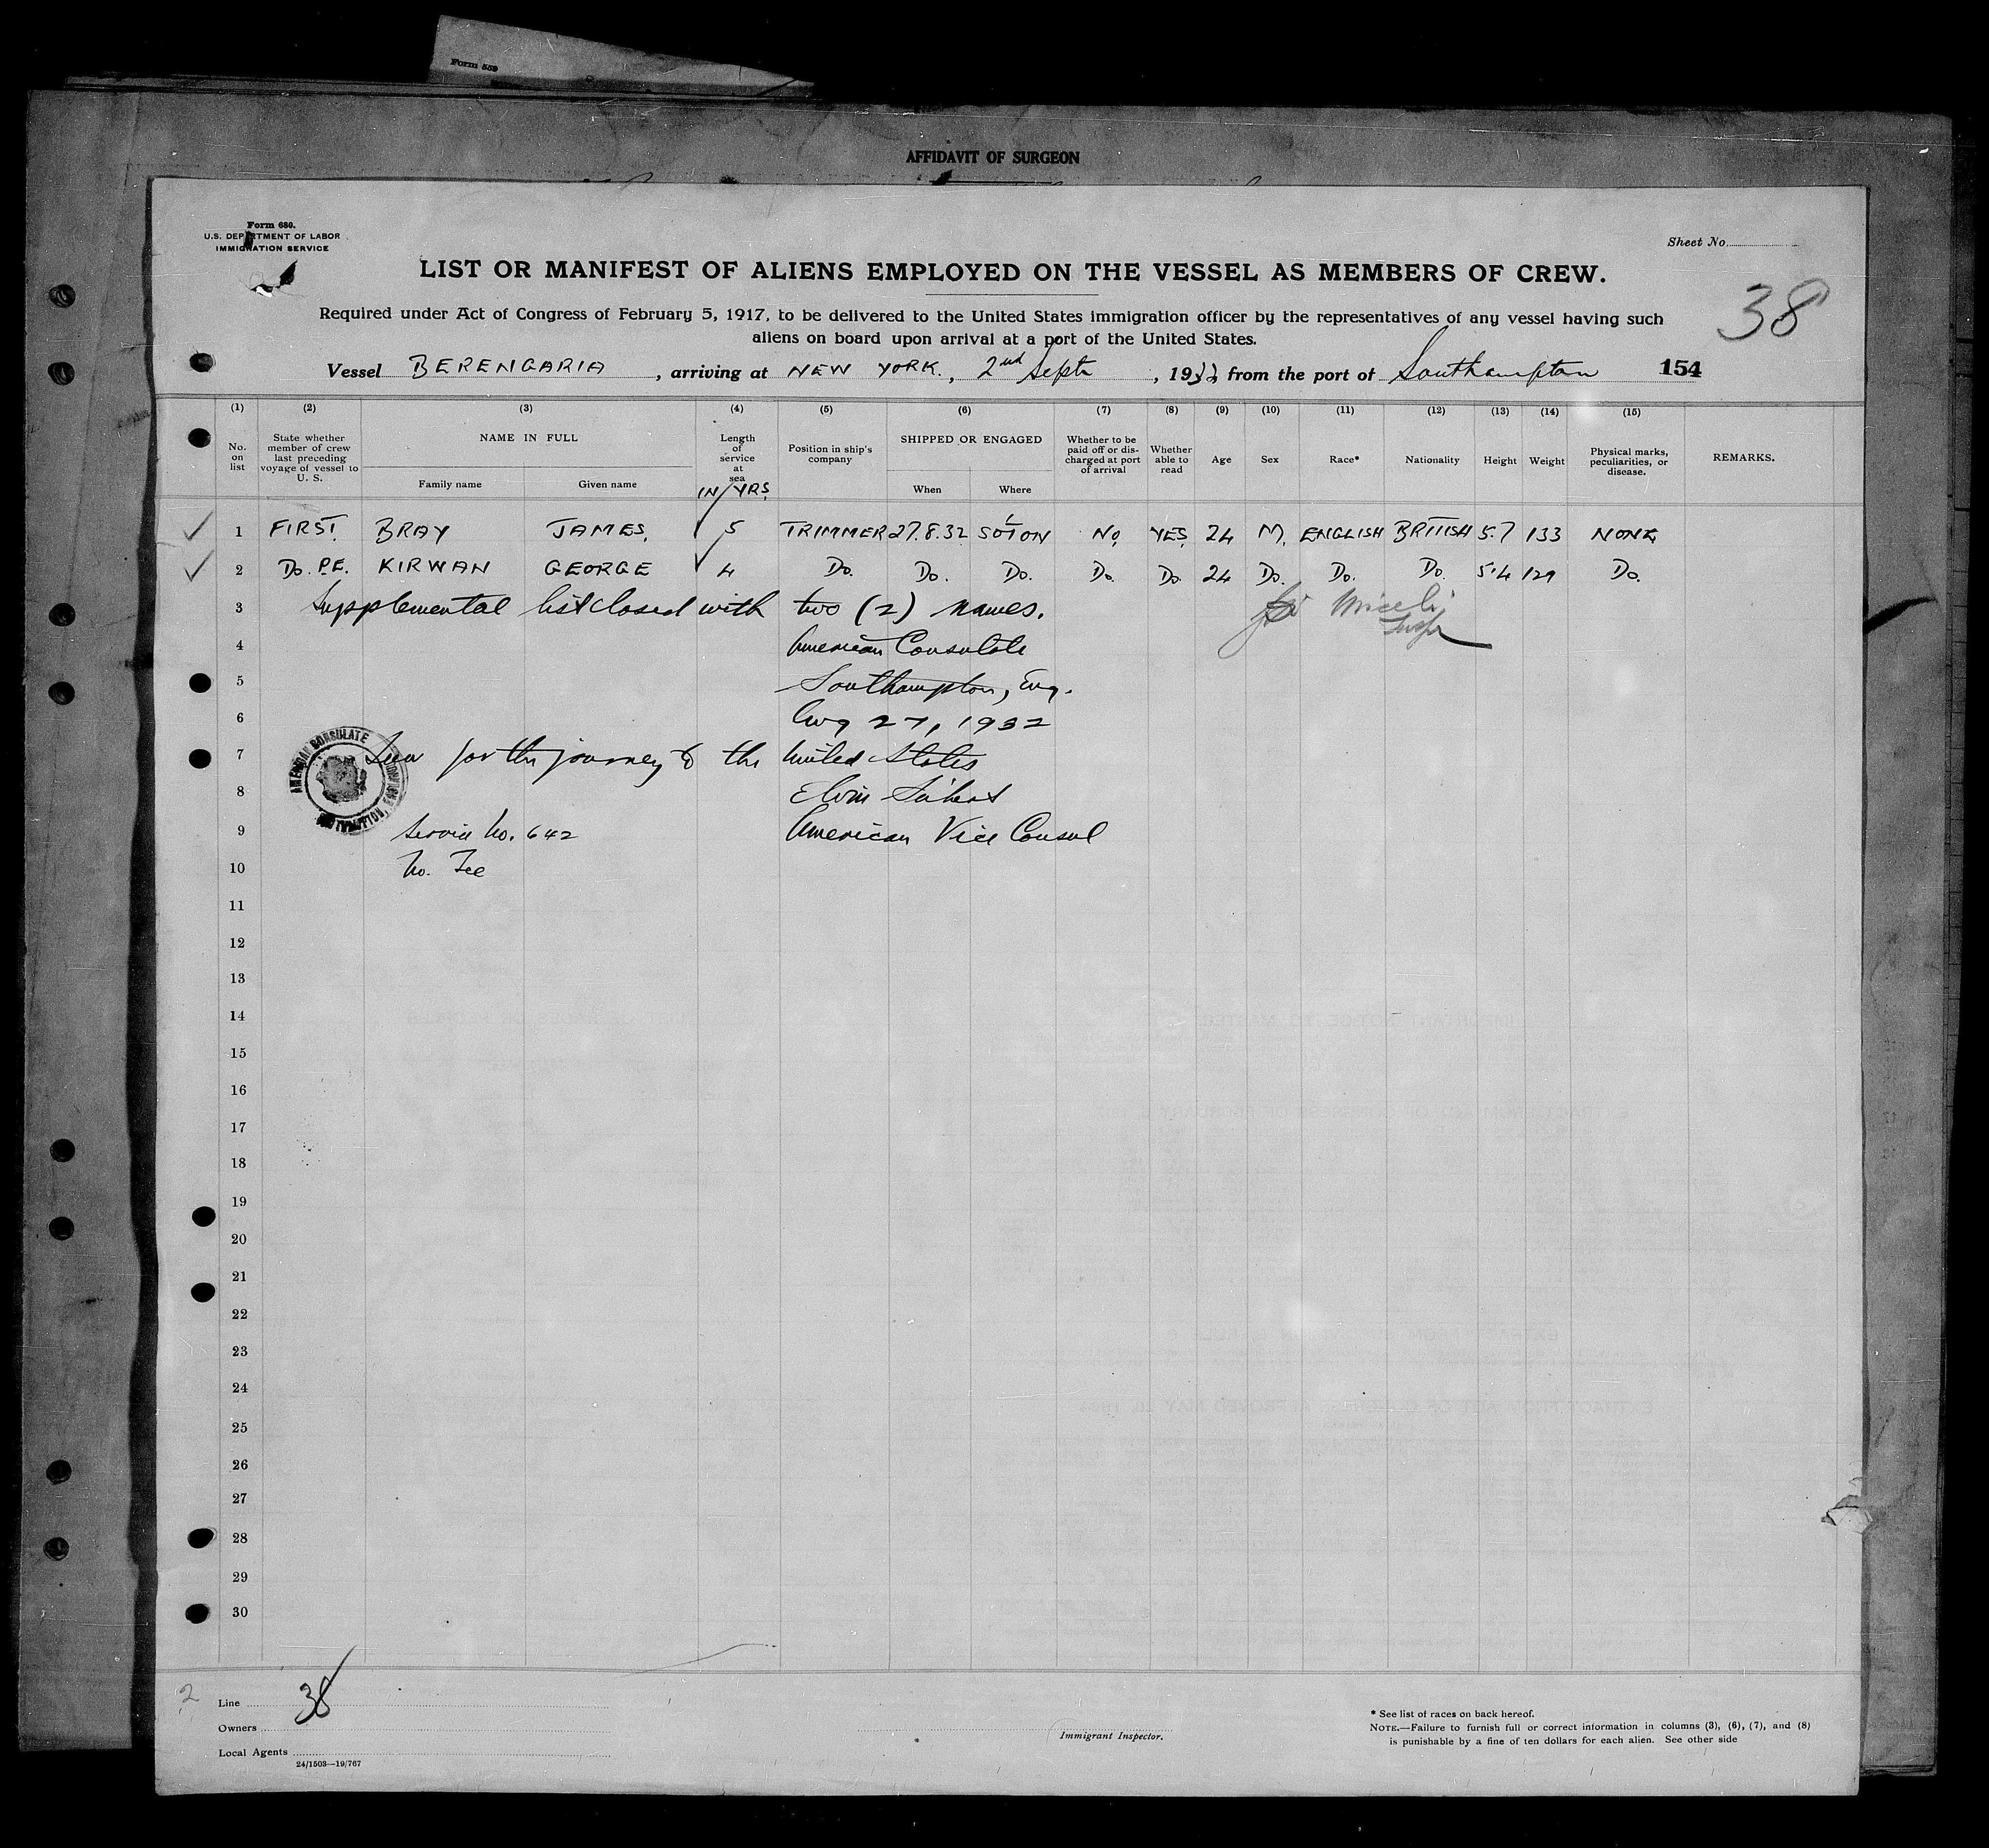 Form 559
AFFIDAVIT OF SURGEON
Form 680.
U.S. DEPARTMENT OF LABOR
IMMIGRATION SERVICE
Sheet No.
LIST OR MANIFEST OF ALIENS EMPLOYED ON THE VESSEL AS MEMBERS OF CREW.
38
Required under Act of Congress of February 5, 1917, to be delivered to the United States immigration officer by the representatives of any vessel having such
aliens on board upon arrival at a port of the United States.
Vessel BERENGARIA, arriving at NEW YORK., 2nd Septr, 1932 from the port of Southampton 154
(1) (2) (3) (4) (5) (6) (7) (8) (9) (10) (11) (12) (13) (14) (15)
No. on list
State whether member of crew last preceding voyage of vessel to U. S.
NAME IN FULL
Family name Given name
Length of service at sea
IN YRS.
Position in ship's company
SHIPPED OR ENGAGED
When Where
Whether to be paid off or discharged at port of arrival
Whether able to read
Age
Sex
Race*
Nationality
Height
Weight
Physical marks, peculiarities, or disease.
REMARKS.
1 FIRST. BRAY JAMES. 5 TRIMMER 27.8.32 SOTON NO. YES. 24 M. ENGLISH BRITISH 5.7 133 NONE
2 Do. P.E. KIRWAN GEORGE 4 Do. Do. Do. Do. Do 24 Do. Do. Do. 5.4 129 Do.
3 Supplemental list closed with two (2) names. Miceli
Insp
4 American Consulate
5 Southampton, Eng.
6 Aug 27, 1932
AMERICAN CONSULATE
SOUTHAMPTON,
7 Seen for the journey to the United States
8 Elvin Seibert
9 Service No. 642 American Vice Consul
10 No. Fee
11
12
13
14
15
16
17
18
19
20
21
22
23
24
25
26
27
28
29
30
2
Line 38
Owners
Local Agents
24/1503—19/767
Immigrant Inspector.
* See list of races on back hereof.
NOTE.—Failure to furnish full or correct information in columns (3), (6), (7), and (8)
is punishable by a fine of ten dollars for each alien. See other side